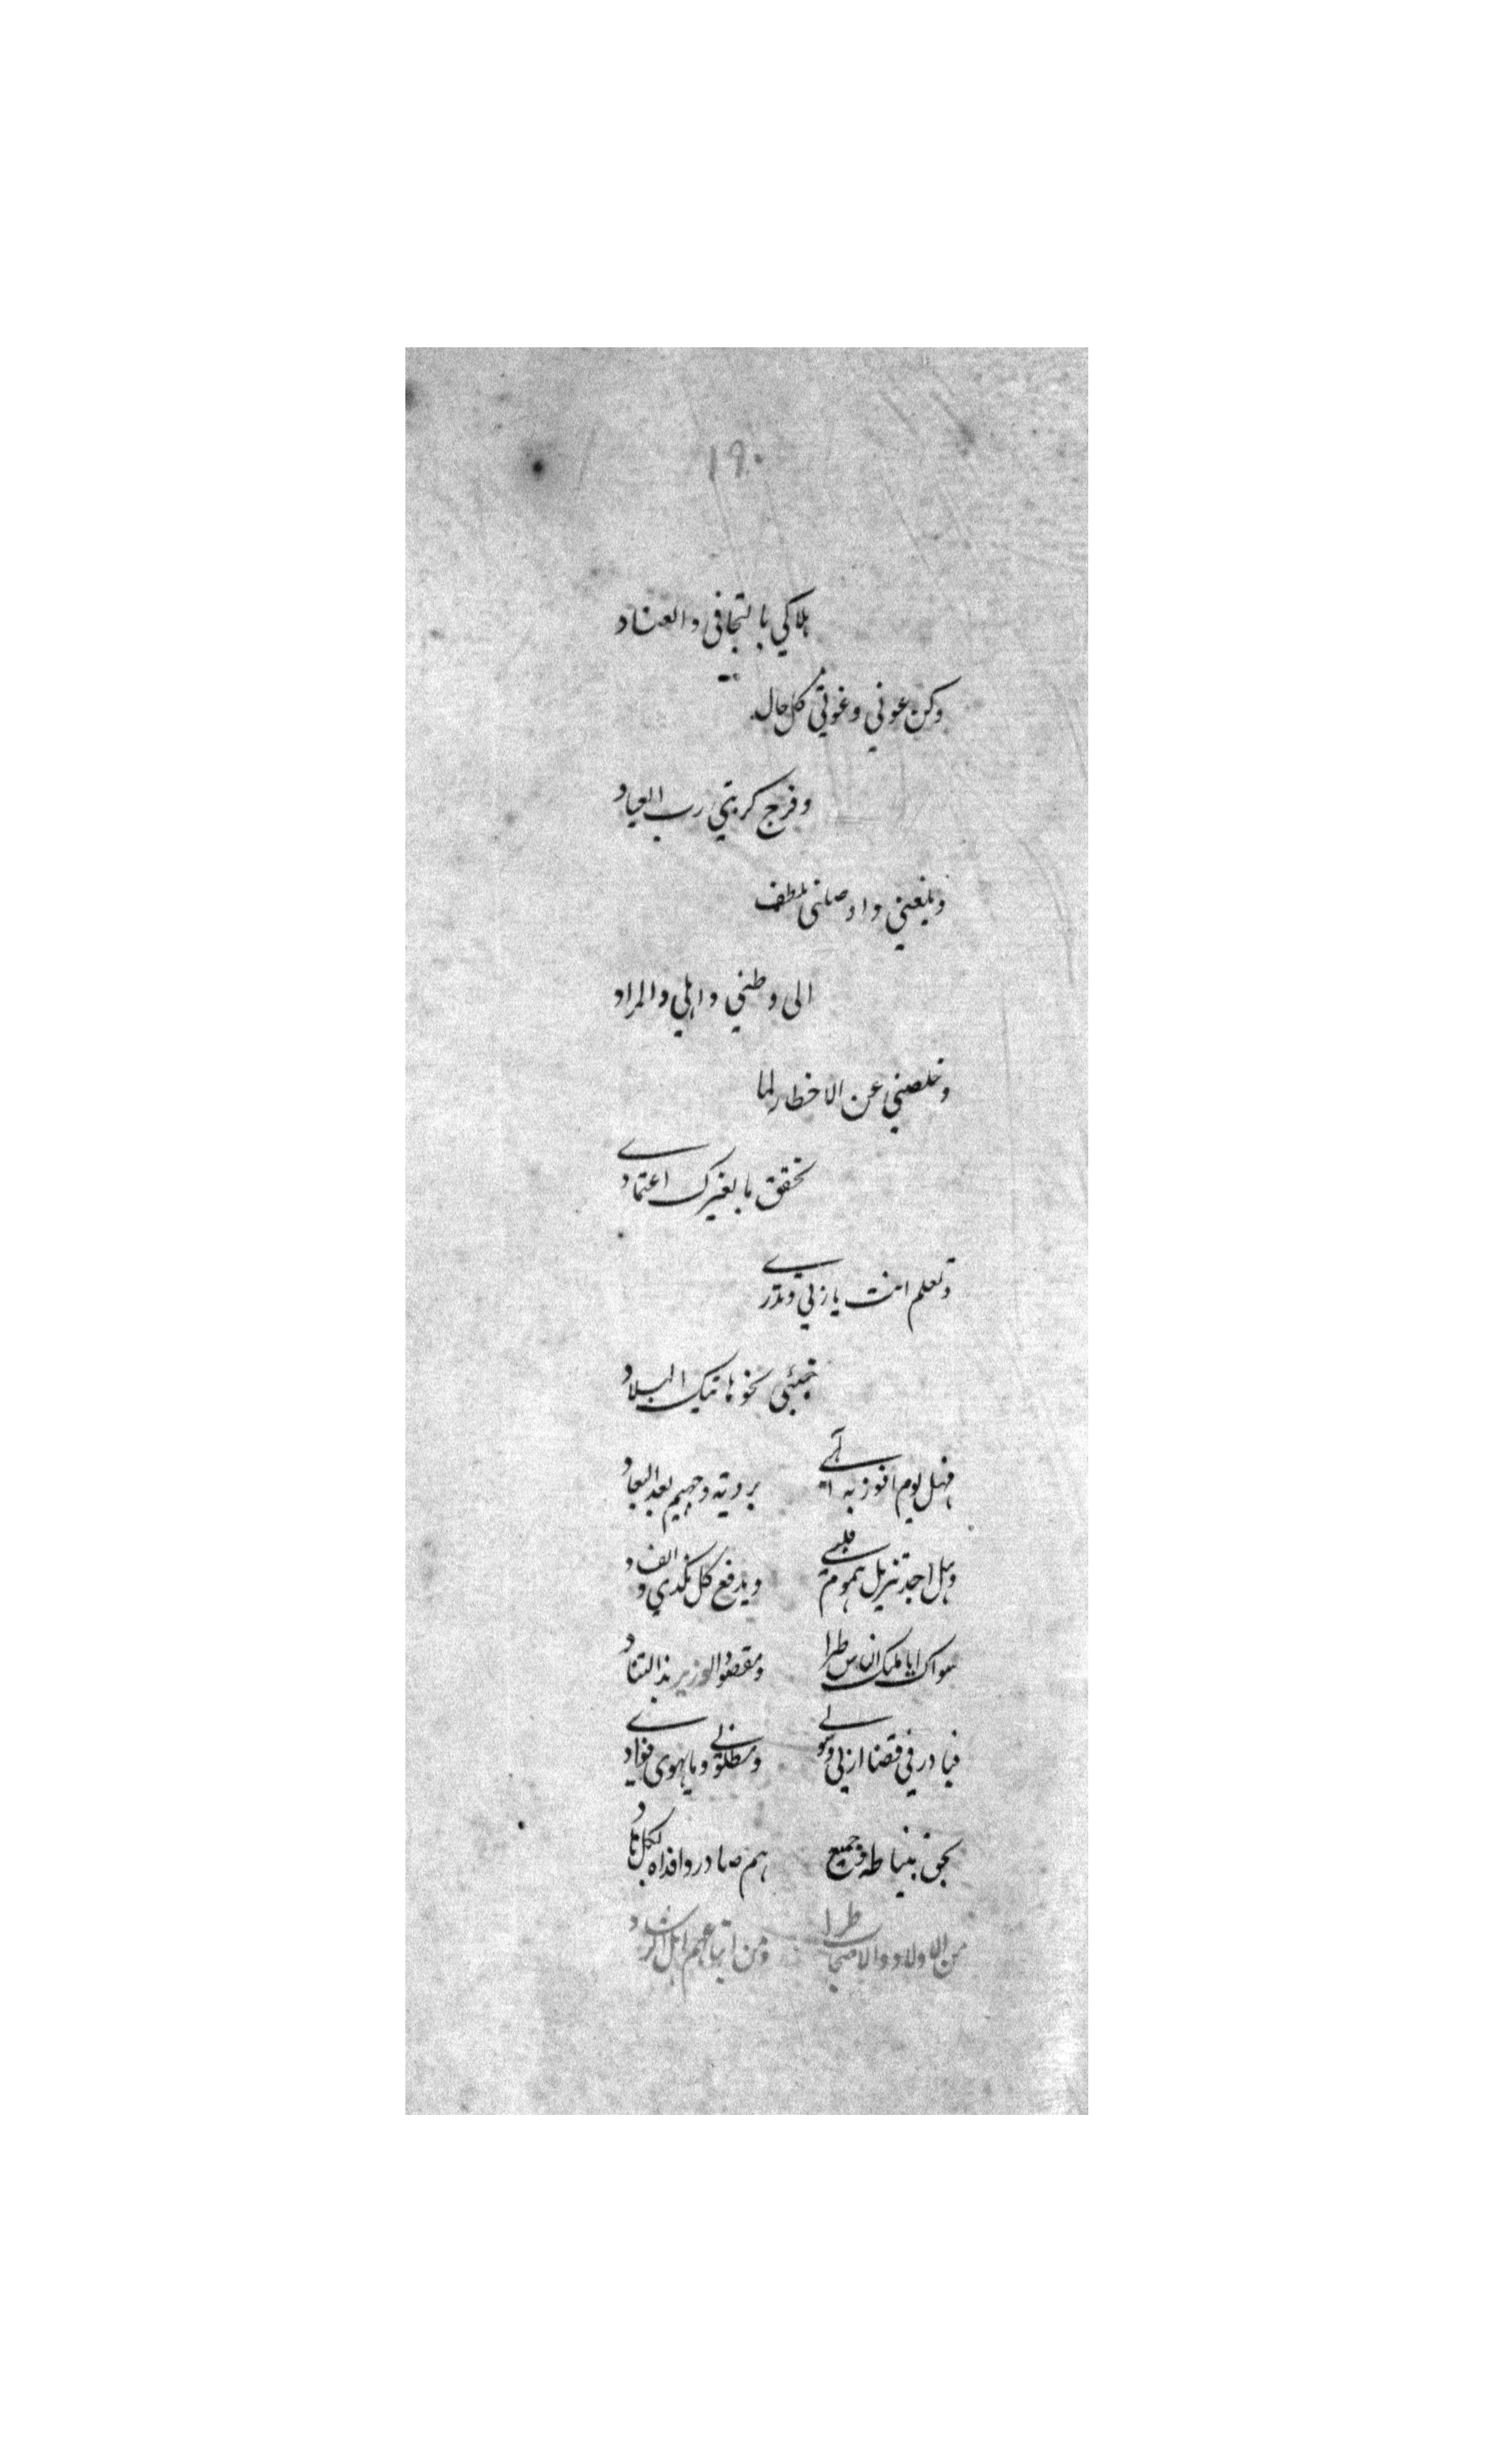 ١٩٠
هلاكي بالتجافي والعناد
وكن عوني وغوثي كل حال
وفرج كربتي رب العباد
وبلغني واوصلني بلطف
الى وطني واهلي والمراد
وخلصني عن الاخطار لما
تحقق ما بغيرك اعتمادي
وتعلم انت يا ربي وتدري
نحو هاتيك البلاد
فهل يوم افوز به برويته وجههم بعد البعاد
وهل احد تزيل هموم قلبي ويدفع كل نكدي و
سواك ايا مليك الناس طرا ومقصود الوزير بذا التناد
فبادر في قضا اربي وسولي ومطلوبي وما يهوى فوادي
بحق نبينا طه وجميع هم صادر وافداه لكل هاد
من الاولاد والاصحاب طرا ومن اتباعهم اهل الرشاد